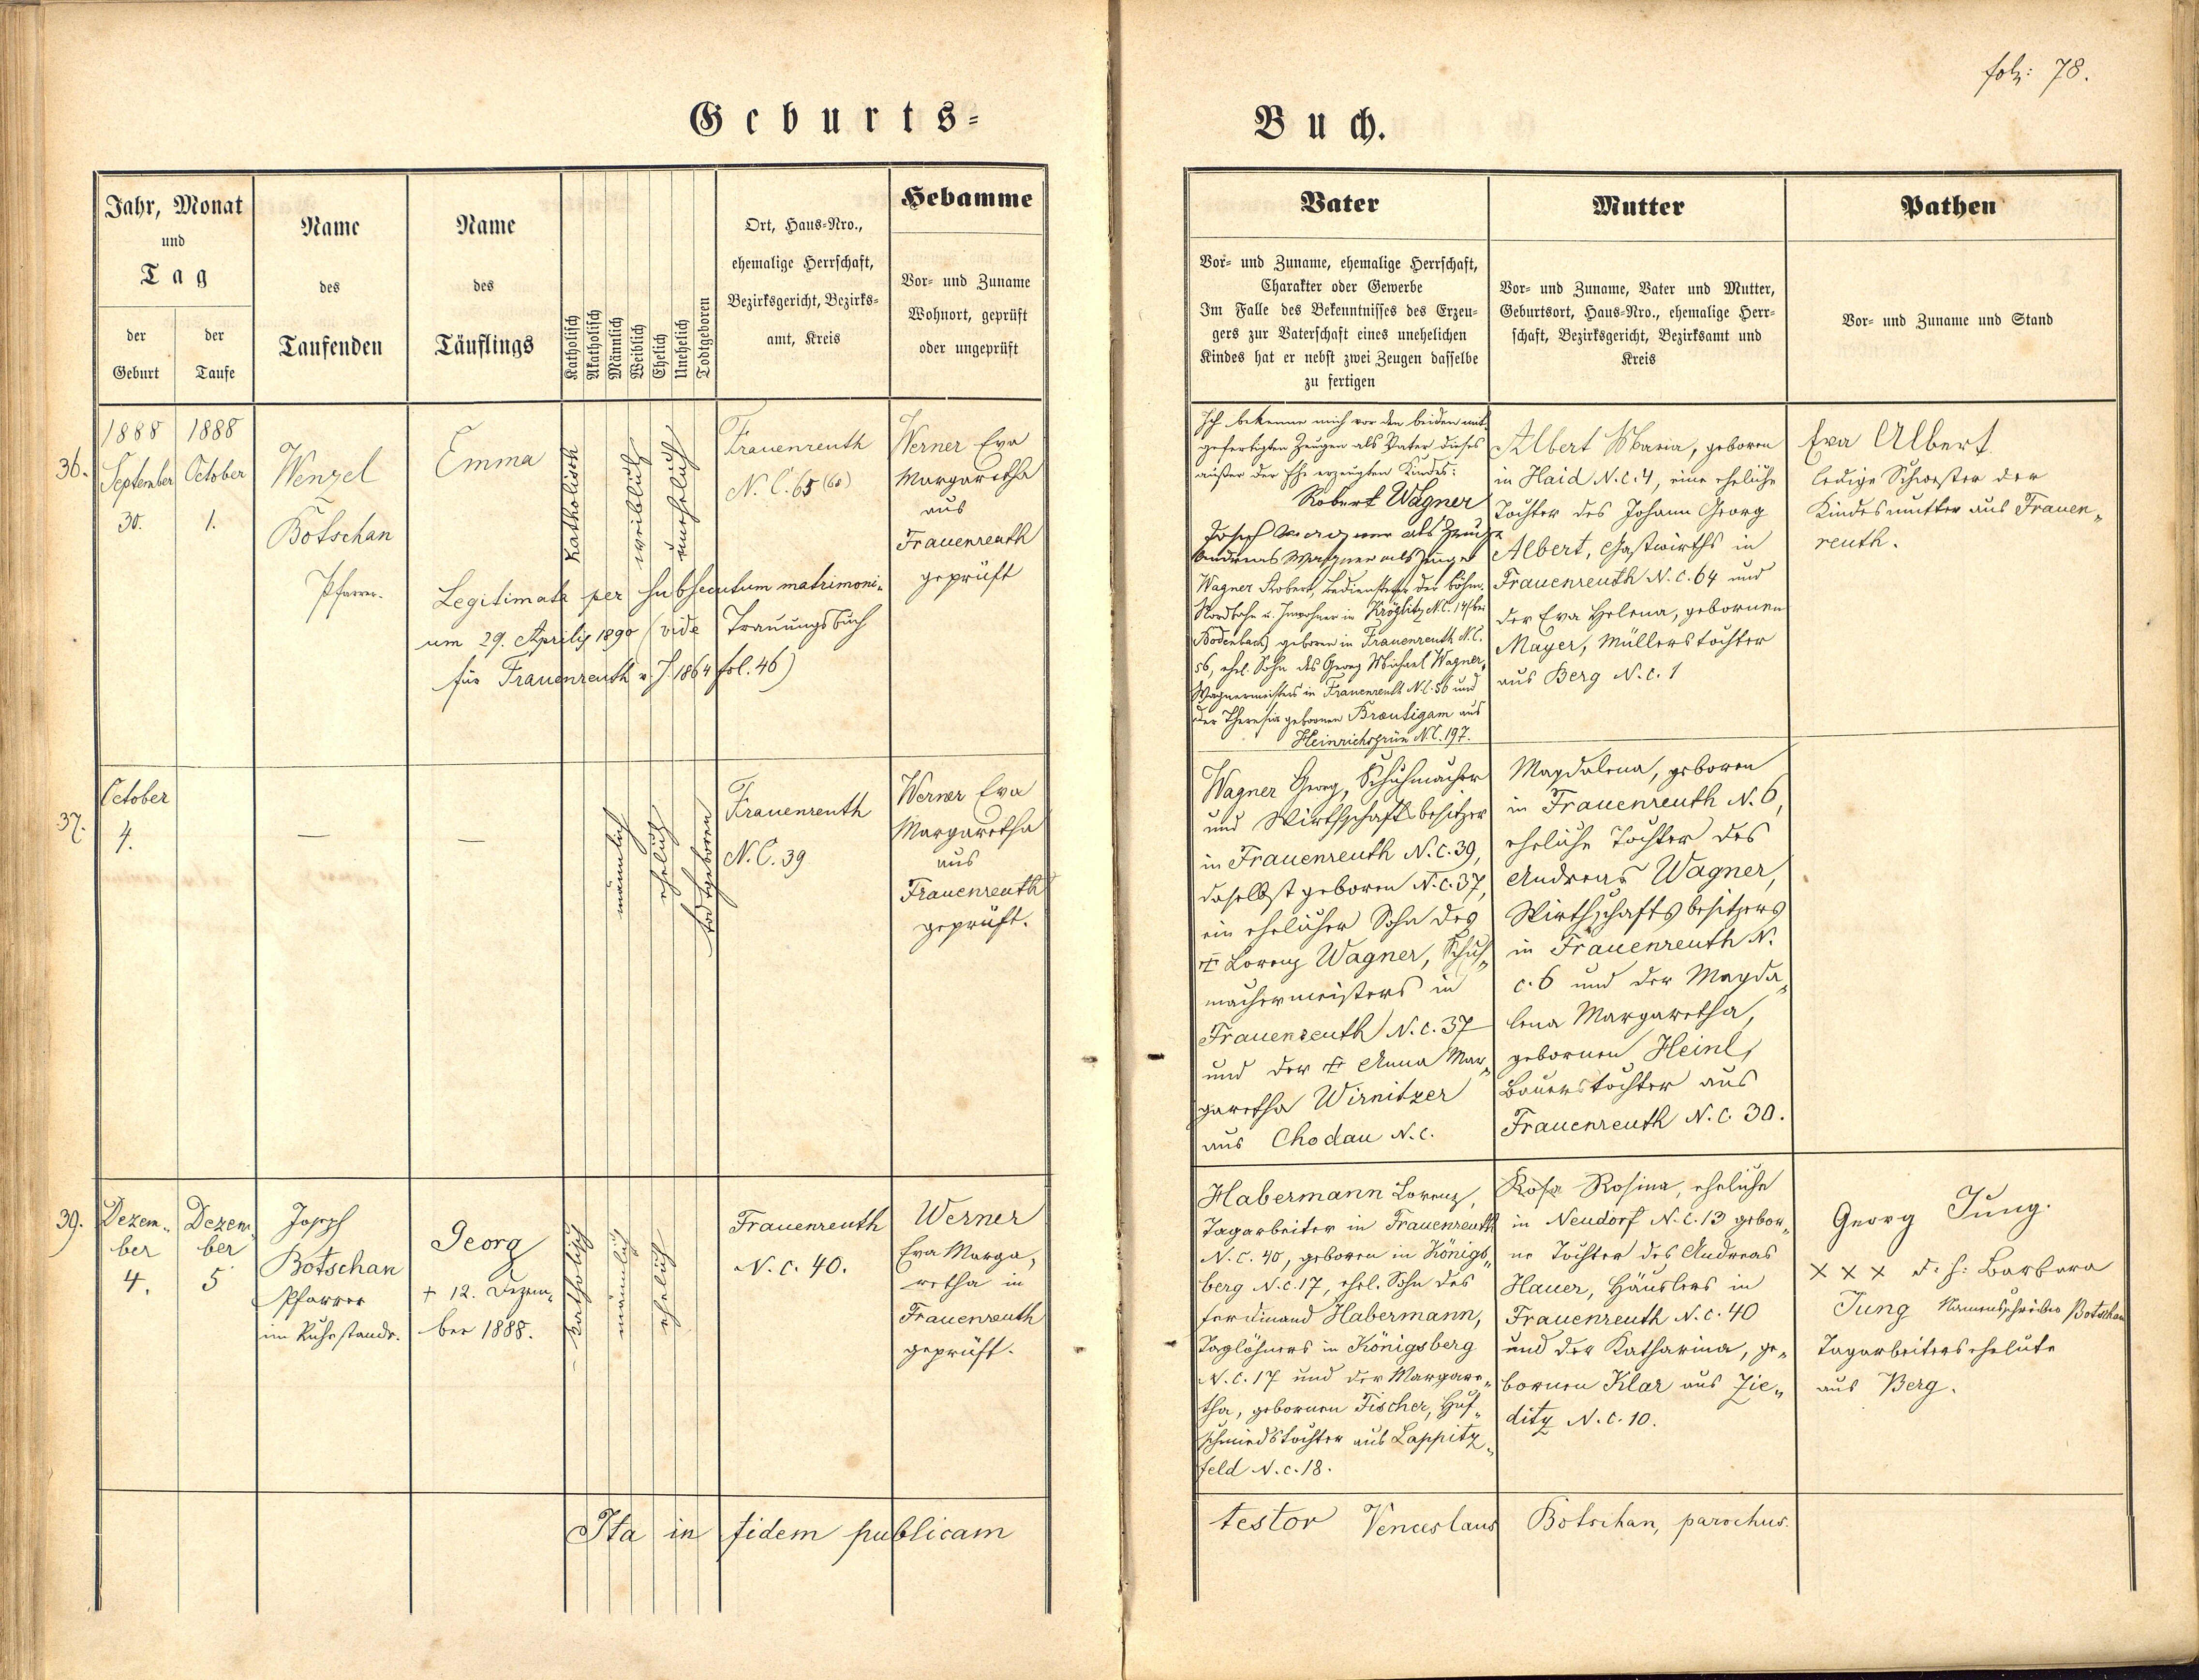 fol: 78.
Geburts=
Buch.
Jahr, Monat
und
Tag
der
Geburt
der
Taufe
Name
des
Taufenden
Name
des
Täuflings
Katholisch
Akatholisch
Männlich
Weiblich
Ehelich
Unehelich
Todtgeboren
Ort, Haus=Nro.,
ehemalige Herrschaft,
Bezirksgericht, Bezirks=
amt, Kreis
Hebamme
Vor= und Zuname
Wohnort, geprüft
oder ungeprüft
Vater
Vor= und Zuname, ehemalige Herrschaft,
Charakter oder Gewerbe
Im Falle des Bekenntnisses des Erzeu=
gers zur Vaterschaft eines unehelichen
Kindes hat er nebst zwei Zeugen dasselbe
zu fertigen
Mutter
Vor= und Zuname, Vater und Mutter,
Geburtsort, Haus=Nro., ehemalige Herr=
schaft, Bezirksgericht, Bezirksamt und
Kreis
Pathen
Vor= und Zuname und Stand
36.
1888
September
30.
1888
October
1.
Wenzel
Botschan
Pfarrer.
Emma
Katholisch
weiblich
unehelich
Legitimata per subsecutum matrimoni„
um 29. Aprilis 1890 (vide Trauungsbuch
für Frauenreuth v. J. 1864 fol. 46)
Frauenreuth
N. C. 65 (60)
Werner Eva
Margaretha
aus
Frauenreuth
geprüft
Ich bekenne mich vor den beiden mit
gefertigten Zeugen als Vater dieses
außer der Ehe erzeugten Kindes:
Robert Wagner
Josef Wagner als Zeuge
Andreas Wagner als Zeuge
Wagner Robert, Bediensteter der böhm.
Nordbahn u. Inwohner in Kröglitz N.C. 14 (bei
Bodenbach) geboren in Frauenreuth N.C.
56, ehel. Sohn des Georg Michael Wagner,
Wagnermeisters in Frauenreuth N.C. 56 und
der Theresia gebornen Bräutigam aus
Heinrichsgrün N.C. 197.
Albert Maria, geboren
in Haid N.C. 4, eine eheliche
Tochter des Johann Georg
Albert, Gastwirths in
Frauenreuth N.C. 64 und
der Eva Helena, gebornen
Mayer, Müllerstochter
aus Berg N.C. 1
Eva Albert
ledige Schwester der
Kindesmutter aus Frauen„
reuth.
37.
October
4.
—
—
männlich
ehelich
todtgeboren
Frauenreuth
N.C. 39
Werner Eva
Margaretha
aus
Frauenreuth
geprüft.
Wagner Georg, Schuhmacher
und Wirthschaftsbesitzer
in Frauenreuth N.C. 39,
daselbst geboren N.C. 37,
ein ehelicher Sohn des
✝ Lorenz Wagner, Schuh„
machermeisters in
Frauenreuth N.C. 37
und der ✝ Anna Mar„
garetha Wirnitzer
aus Chodau N.C.
Magdalena, geboren
in Frauenreuth N. 6,
eheliche Tochter des
Andreas Wagner,
Wirthschaftsbesitzers
in Frauenreuth N.
C. 6 und der Magda„
lena Margaretha,
gebornen Heinl,
Bauerstochter aus
Frauenreuth N.C. 30.
39.
Dezem„
ber
4.
Dezem„
ber
5
Joseph
Botschan
Pfarrer
im Ruhestande.
Georg
+ 12. Dezem„
ber 1888.
Katholisch
männlich
ehelich
Frauenreuth
N.C. 40.
Werner
Eva Marga„
retha in
Frauenreuth
geprüft.
Habermann Lorenz,
Tagarbeiter in Frauenreuth
N.C. 40, geboren in Königs„
berg N.C. 17, ehel. Sohn des
Ferdinand Habermann,
Taglöhners in Königsberg
N.C. 17 und der Margare„
tha, gebornen Fischer, Huf„
schmiedstochter aus Lappitz„
feld N.C. 18.
Rosina, eheliche
in Neudorf N.C. 13 gebor„
ne Tochter des Andreas
Hauer, Häuslers in
Frauenreuth N.C. 40
und der Katharina, ge„
bornen Klar aus Zie„
ditz N.C. 10.
Georg Jung.
x x x d. h: Barbara
Jung Namensschreiber Botschan
Tagarbeiterseheleute
aus Berg.
Ita in fidem publicam
testor Venceslaus Botschan, parochus.